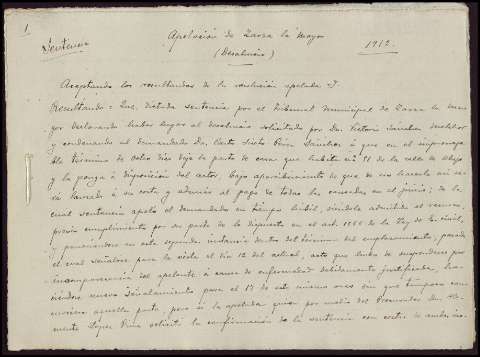 1
Sentencia
Apelación de Zarza la Mayor
(Desahucio)
1912.
Aceptando los resultandos de la resolución apelada y.
Resultando: Que, dictada sentencia por el Tribunal municipal de Zarza la Ma
yor declarando haber lugar al desahucio solicitado por Dn. Victorio Sánchez
y condenando al demandado Dn. Sixto Pérez Sánchez á que en el improrroga
ble término de ocho días deje la parte de casa que habita nº 11 de la calle de abajo
y la ponga á disposición del actor, bajo apercibimiento de que de no hacerlo así se
rá lanzado á su costa y además al pago de todas las causadas en el juicio; de la
cual sentencia apeló el demandado en tiempo hábil, siéndole admitido el recurso,
previo cumplimiento por su parte de lo dispuesto en el art. 1566 de la Ley de E. civil,
y personándose en esta segunda instancia dentro del término del emplazamiento, pasado
el cual señalose para la vista el día 12 del actual, acto que hubo de suspenderse por
incomparecencia del apelante á causa de enfermedad debidamente justificada, ha
ciéndose nuevo señalamiento para el 17 de este mismo mes sin que tampoco com
pareciera aquella parte, pero sí la apelada quien por medio del Procurador Dn. Cle
mente López Pérez solicitó la confirmación de la sentencia con costas de ambas ins